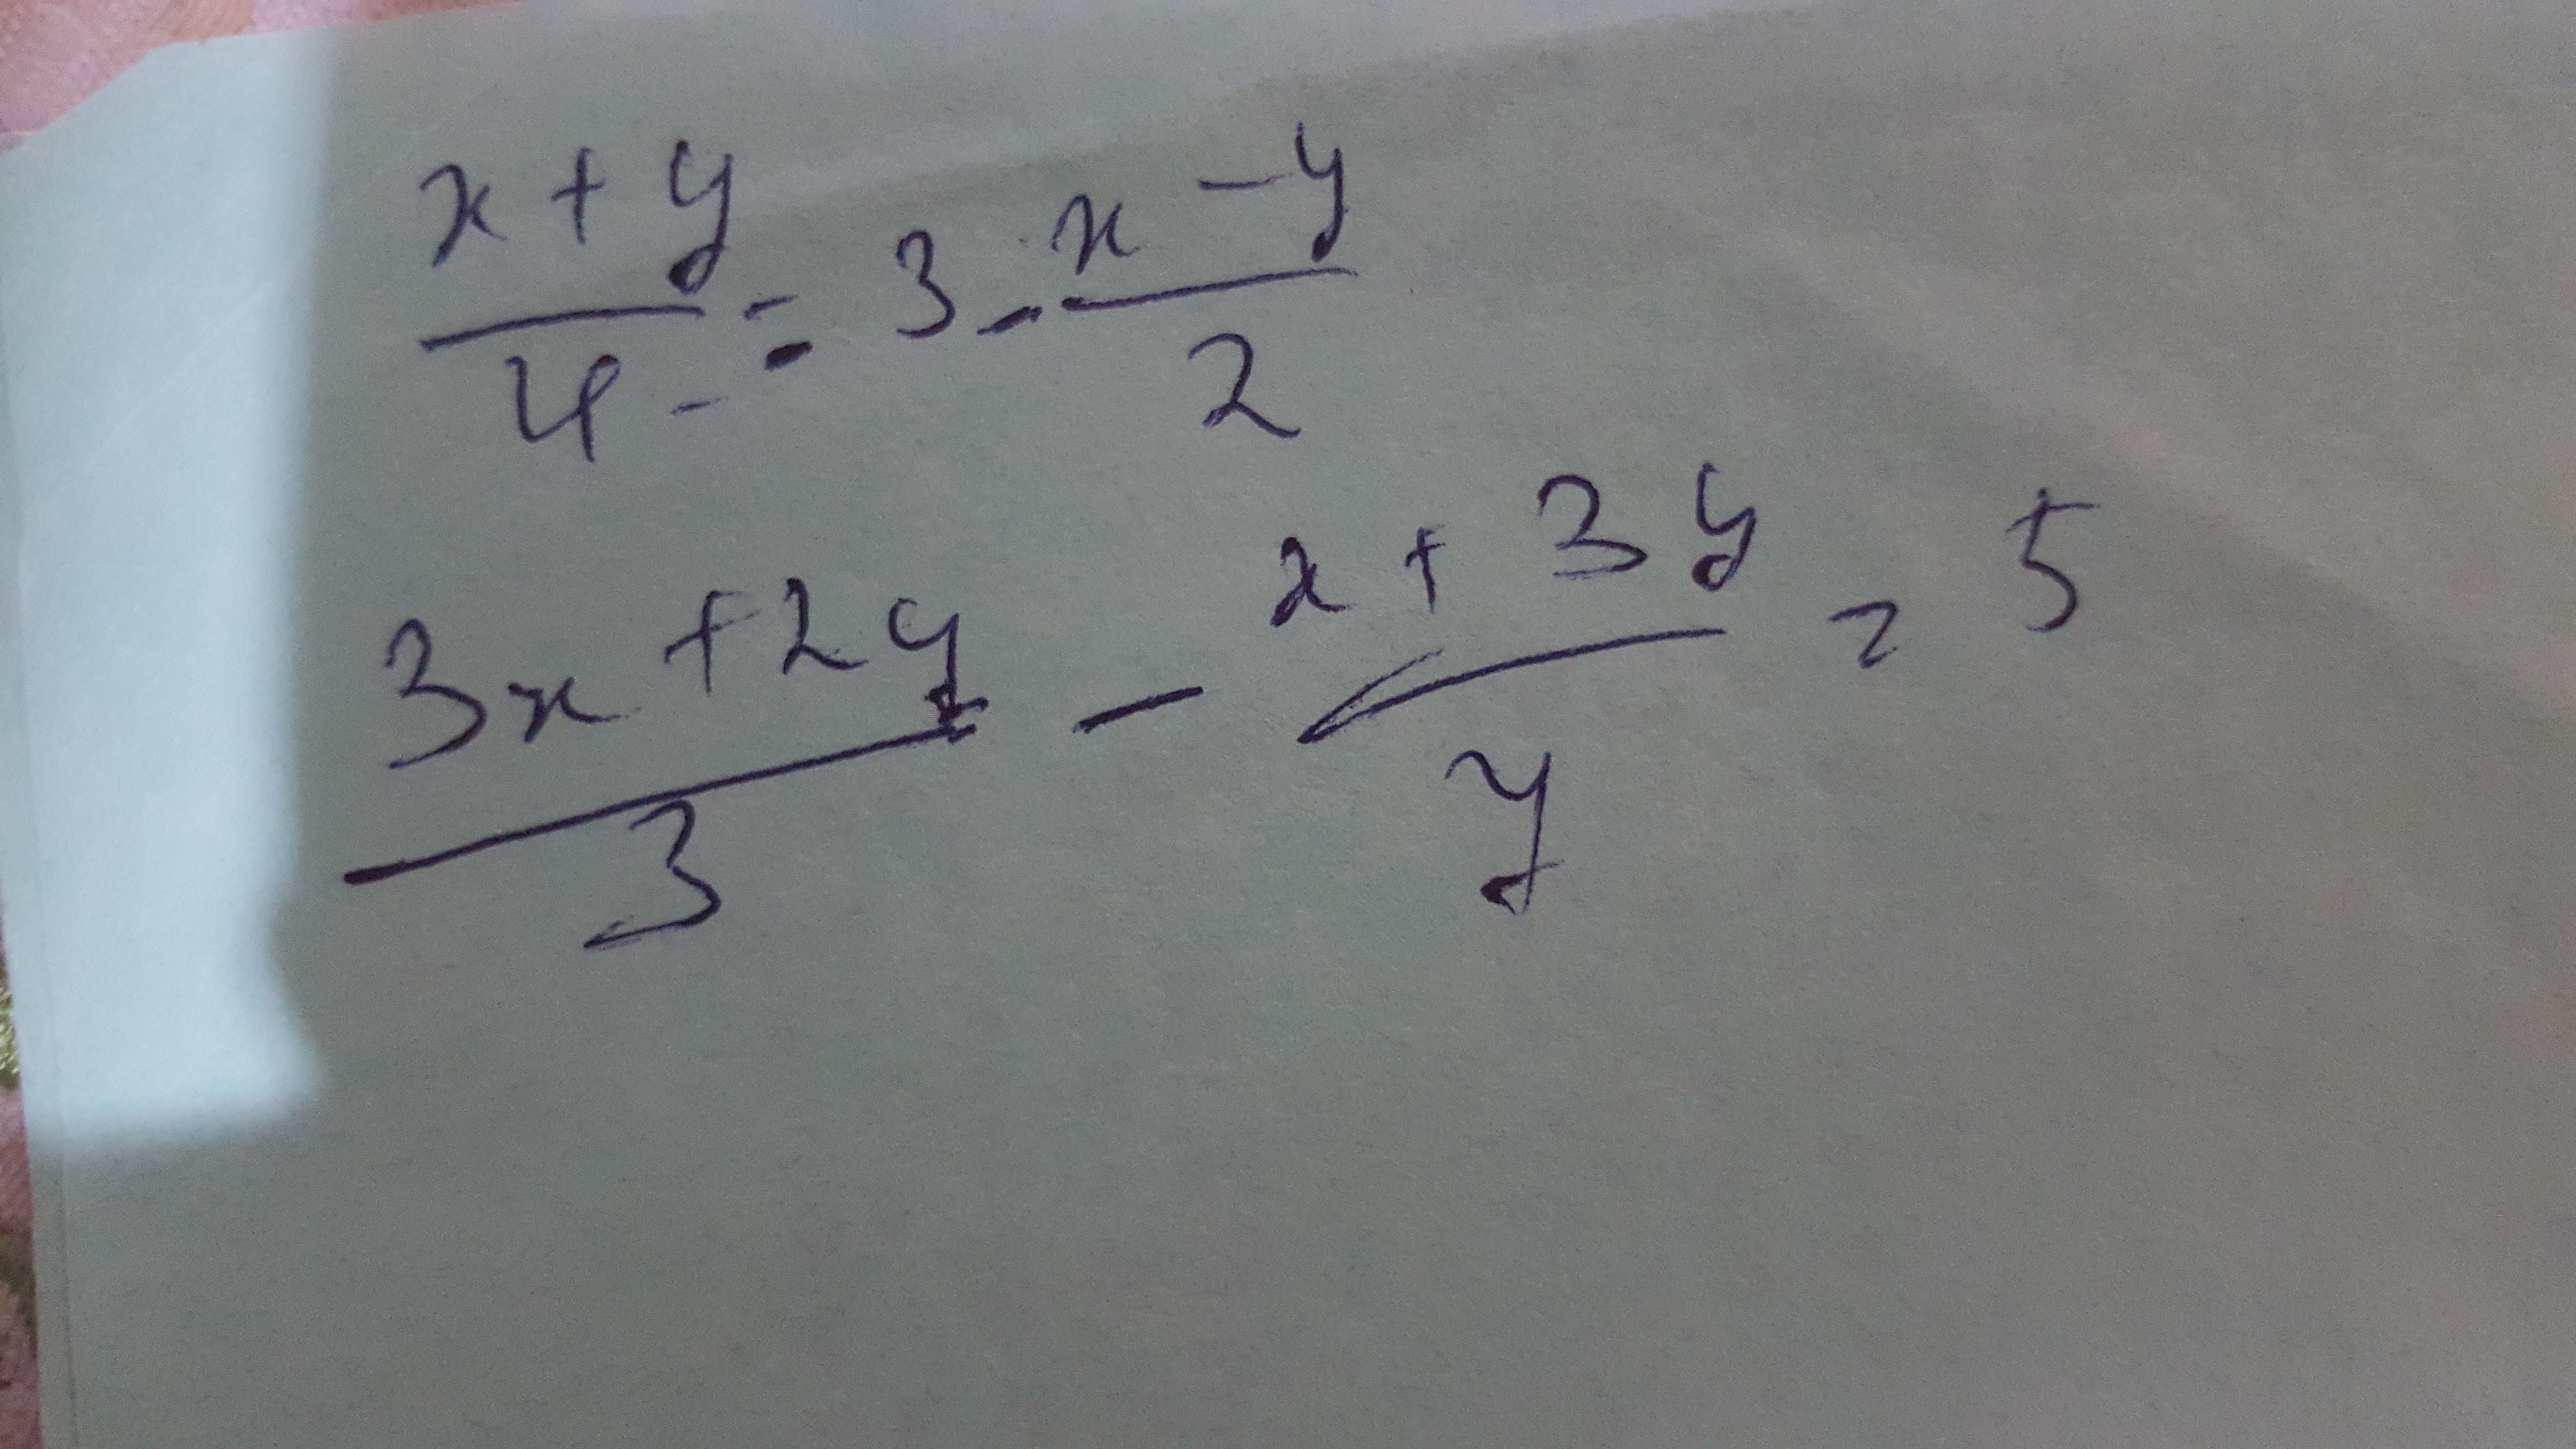 x + y / 4 = 3 - x - y / 2
3x + 2y / 3 - x + 3y / y = 5